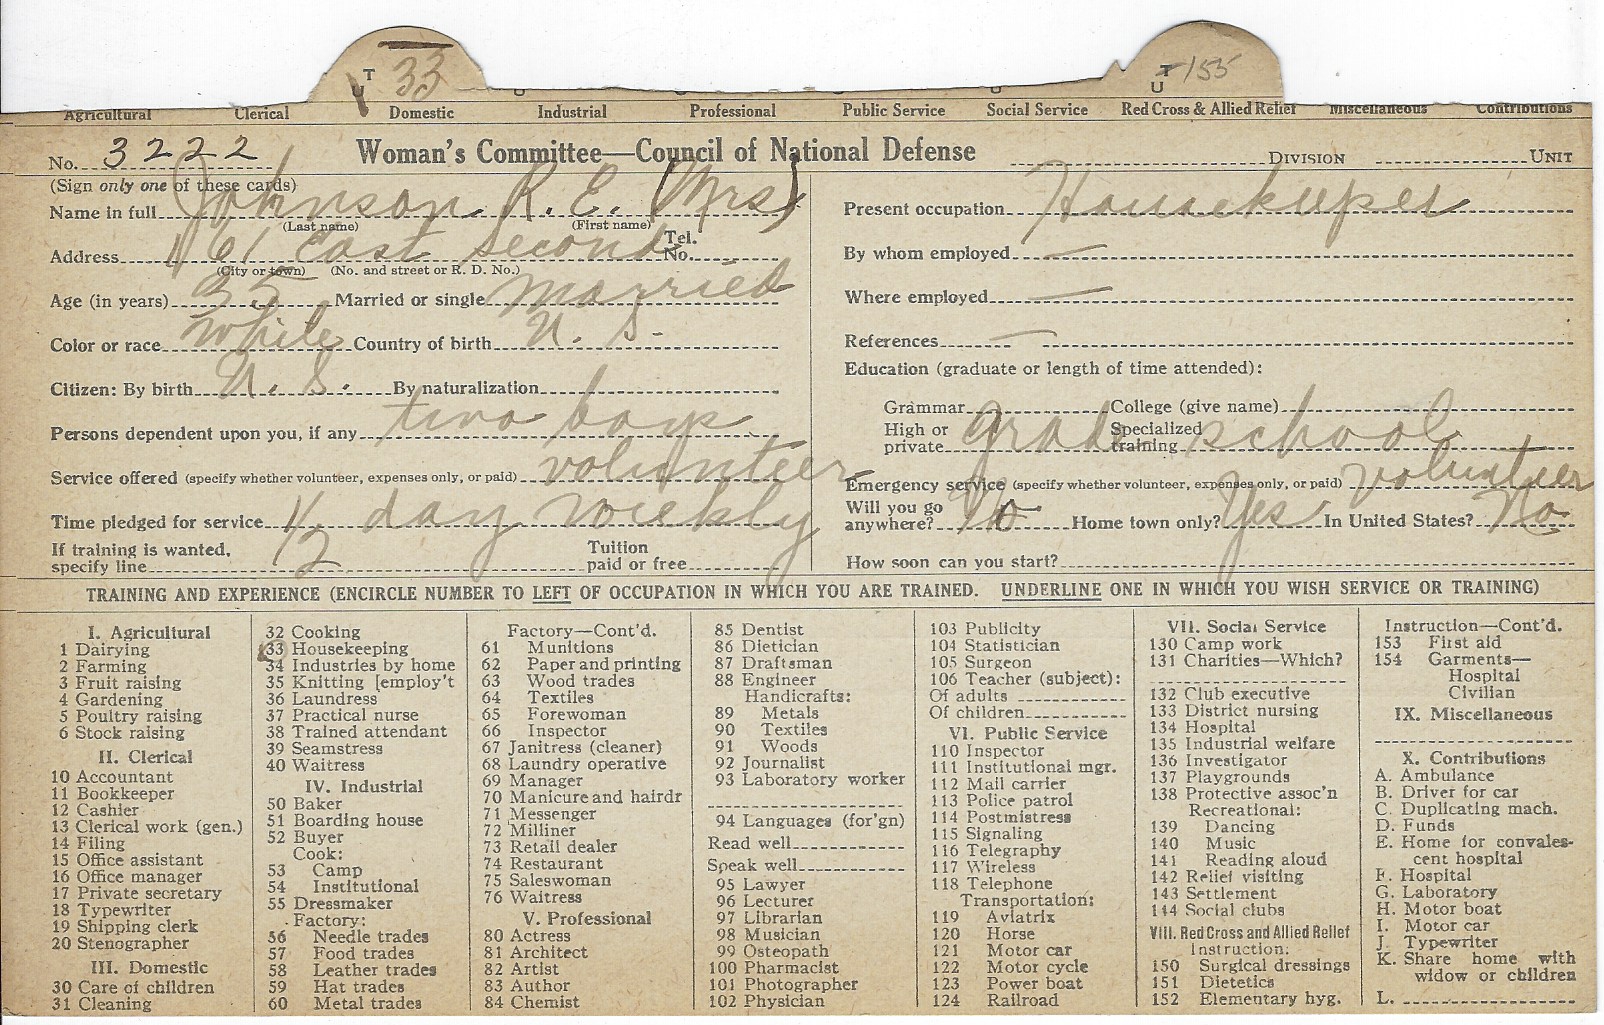 T 33 T 155
U U
Agricultural Clerical Domestic Industrial Professional Public Service Social Service Red Cross & Allied Relief Miscellaneous Contributions
No. 3222 Woman's Committee—Council of National Defense DIVISION UNIT
(Sign only one of these cards)
Name in full Johnson R. E. (Mrs)
(Last name) (First name)
Address 1161 East Second Tel. No.
(City or town) (No. and street or R. D. No.)
Age (in years) 35 Married or single Married
Color or race White Country of birth U. S.
Citizen: By birth U. S. By naturalization
Persons dependent upon you, if any two boys
Service offered (specify whether volunteer, expenses only, or paid) volunteer
Time pledged for service 1/2 day weekly
If training is wanted, specify line Tuition paid or free
Present occupation Housekeeper
By whom employed —
Where employed —
References —
Education (graduate or length of time attended):
Grammar College (give name)
High or private Grade Specialized training school
Emergency service (specify whether volunteer, expenses only, or paid) volunteer
Will you go anywhere? No Home town only? Yes In United States? No
How soon can you start?
TRAINING AND EXPERIENCE (ENCIRCLE NUMBER TO LEFT OF OCCUPATION IN WHICH YOU ARE TRAINED. UNDERLINE ONE IN WHICH YOU WISH SERVICE OR TRAINING)
I. Agricultural
1 Dairying
2 Farming
3 Fruit raising
4 Gardening
5 Poultry raising
6 Stock raising
II. Clerical
10 Accountant
11 Bookkeeper
12 Cashier
13 Clerical work (gen.)
14 Filing
15 Office assistant
16 Office manager
17 Private secretary
18 Typewriter
19 Shipping clerk
20 Stenographer
III. Domestic
30 Care of children
31 Cleaning
32 Cooking
33 Housekeeping
34 Industries by home
35 Knitting [employ't
36 Laundress
37 Practical nurse
38 Trained attendant
39 Seamstress
40 Waitress
IV. Industrial
50 Baker
51 Boarding house
52 Buyer
Cook:
53 Camp
54 Institutional
55 Dressmaker
Factory:
56 Needle trades
57 Food trades
58 Leather trades
59 Hat trades
60 Metal trades
Factory—Cont'd.
61 Munitions
62 Paper and printing
63 Wood trades
64 Textiles
65 Forewoman
66 Inspector
67 Janitress (cleaner)
68 Laundry operative
69 Manager
70 Manicure and hairdr
71 Messenger
72 Milliner
73 Retail dealer
74 Restaurant
75 Saleswoman
76 Waitress
V. Professional
80 Actress
81 Architect
82 Artist
83 Author
84 Chemist
85 Dentist
86 Dietician
87 Draftsman
88 Engineer
Handicrafts:
89 Metals
90 Textiles
91 Woods
92 Journalist
93 Laboratory worker
94 Languages (for'gn)
Read well
Speak well
95 Lawyer
96 Lecturer
97 Librarian
98 Musician
99 Osteopath
100 Pharmacist
101 Photographer
102 Physician
103 Publicity
104 Statistician
105 Surgeon
106 Teacher (subject):
Of adults
Of children
VI. Public Service
110 Inspector
111 Institutional mgr.
112 Mail carrier
113 Police patrol
114 Postmistress
115 Signaling
116 Telegraphy
117 Wireless
118 Telephone
Transportation:
119 Aviatrix
120 Horse
121 Motor car
122 Motor cycle
123 Power boat
124 Railroad
VII. Social Service
130 Camp work
131 Charities—Which?
132 Club executive
133 District nursing
134 Hospital
135 Industrial welfare
136 Investigator
137 Playgrounds
138 Protective assoc'n
Recreational:
139 Dancing
140 Music
141 Reading aloud
142 Relief visiting
143 Settlement
144 Social clubs
VIII. Red Cross and Allied Relief
Instruction:
150 Surgical dressings
151 Dietetics
152 Elementary hyg.
Instruction—Cont'd.
153 First aid
154 Garments—
Hospital
Civilian
IX. Miscellaneous
X. Contributions
A. Ambulance
B. Driver for car
C. Duplicating mach.
D. Funds
E. Home for convales-
cent hospital
F. Hospital
G. Laboratory
H. Motor boat
I. Motor car
J. Typewriter
K. Share home with
widow or children
L.